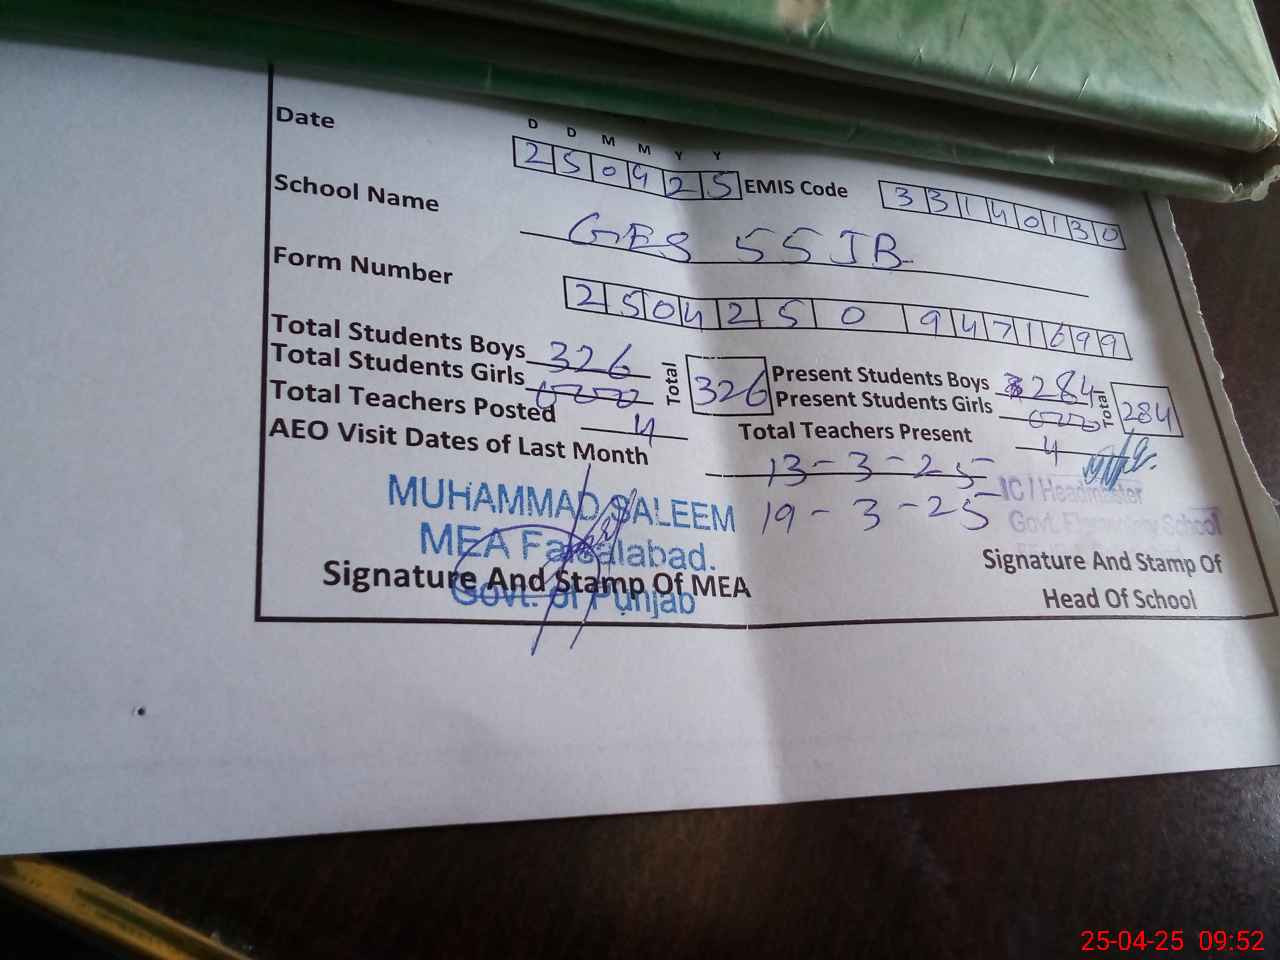 D D M M Y Y
Date 2 5 0 4 2 5 EMIS Code 3 3 1 4 0 1 3 0
School Name GES 55 JB
Form Number 2 5 0 4 2 5 0 9 4 7 1 6 9 9
Total Students Boys 326 Total 326 Present Students Boys 284 Total 284
Total Students Girls 000 Present Students Girls 000
Total Teachers Posted 4 Total Teachers Present 4
AEO Visit Dates of Last Month 13-3-25
19-3-25
MUHAMMAD SALEEM
MEA Faisalabad.
Govt. of Punjab
Signature And Stamp Of MEA
IC / Headmaster
Govt. Elementary School
Signature And Stamp Of
Head Of School
25-04-25 09:52